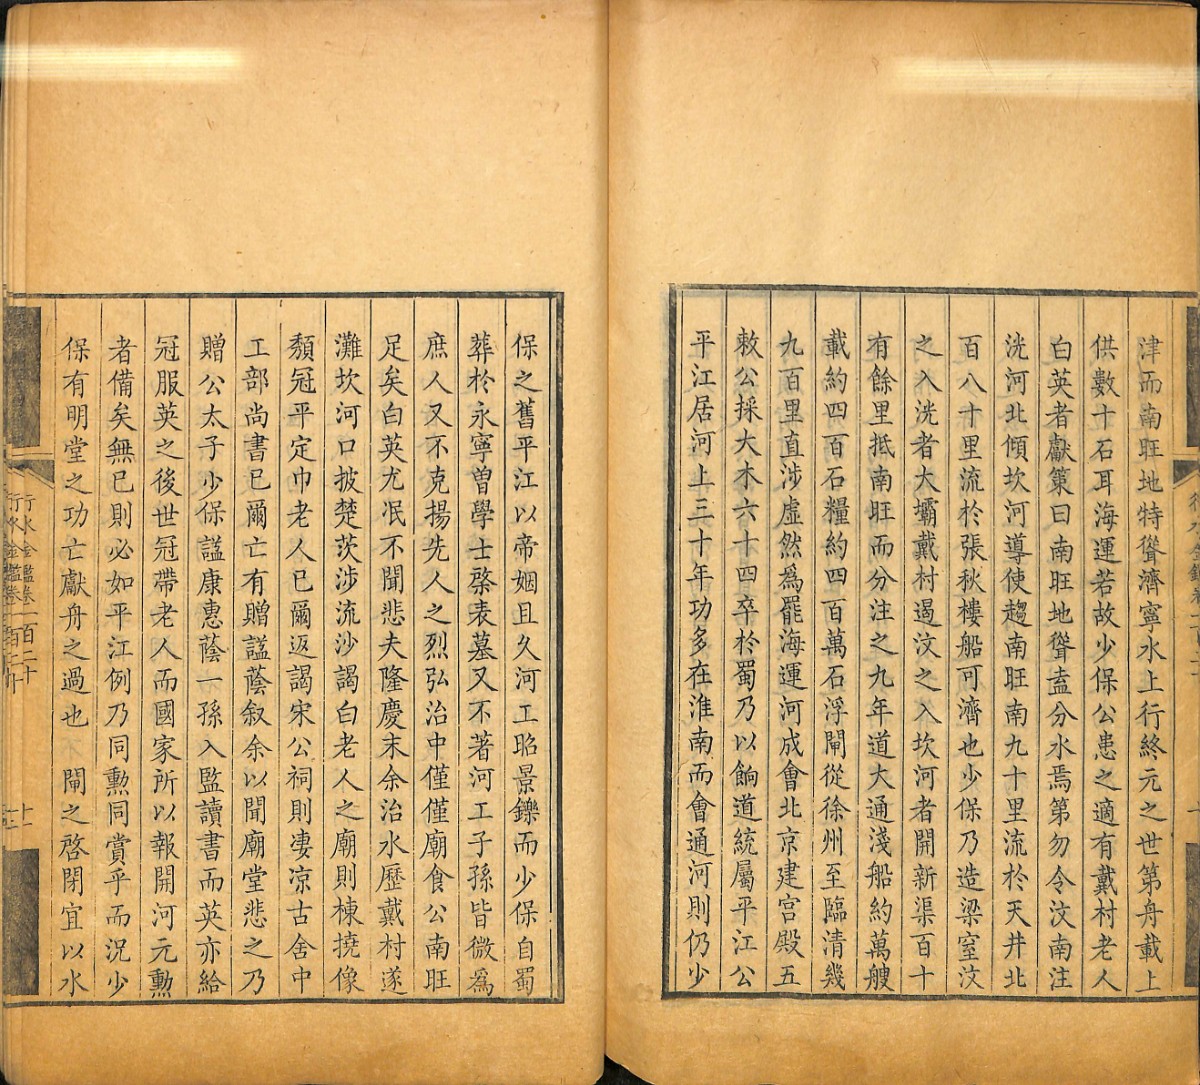 津而南旺地特聳濟寧水上行終元之世第舟載上
供數十石耳海運若故少保公患之適有戴村老人
白英者獻策曰南旺地聳盍分水焉第勿令汶南注
洸河北傾坎河導使趨南旺南九十里流於天井北
百八十里流於張秋樓船可濟也少保乃造梁窒汶
之入洸者大壩戴村遏汶之入坎河者開新渠百十
有餘里抵南旺而分注之九年道大通淺船約萬艘
載約四百石糧約四百萬石浮閘從徐州至臨清幾
九百里直涉虛然爲罷海運河成會北京建宫殿五
敕公採大木六十四卒於蜀乃以餉道統屬平江公
平江居河上三十年功多在淮南而會通河則仍少
保之舊平江以帝姻且久河工昭景鑠而少保自蜀
葬於永寧曽學士棨表墓又不著河工子孫皆微爲
庶人又不克揚先人之烈弘治中僅僅廟食公南旺
足矣白英尤泯不聞悲夫隆慶末余治水歷戴村遂
灘坎河口披楚茨涉流沙謁白老人之廟則棟撓像
頽冠平定巾老人已爾返謁宋公祠則凄凉古舍中
工部尚書已爾亡有贈諡蔭叙余以聞廟堂悲之乃
贈公太子少保諡康惠蔭一孫入監讀書而英亦給
冠服英之後世冠帶老人而國家所以報開河元勳
者備矣無已則必如平江例乃同勲同賞乎而況少
保有明堂之功亡獻舟之過也　閘之啓閉宜以水
行水金鑑卷一百二十
十一